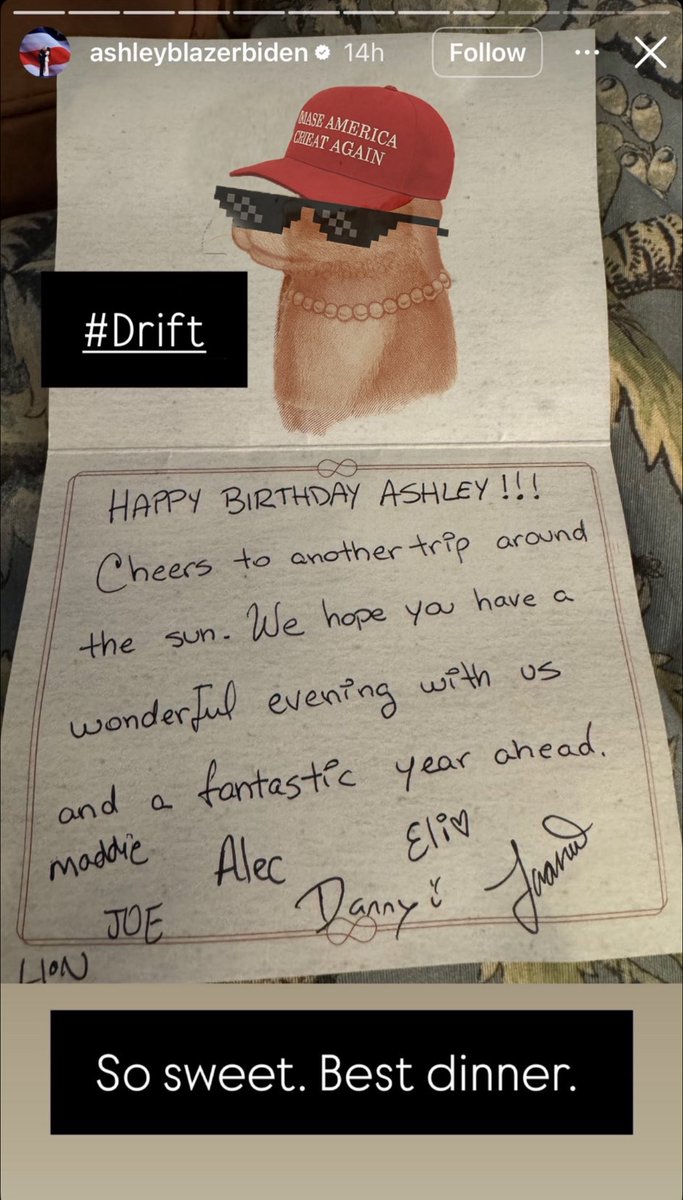 ashleyblazerbiden 14h Follow
MASE AMERICA
CHEAT AGAIN
#Drift
HAPPY BIRTHDAY ASHLEY!!!
Cheers to another trip around
the sun. We hope you have a
wonderful evening with us
and a fantastic year ahead.
maddie Alec Eli♡
JOE Danny
LION
So sweet. Best dinner.